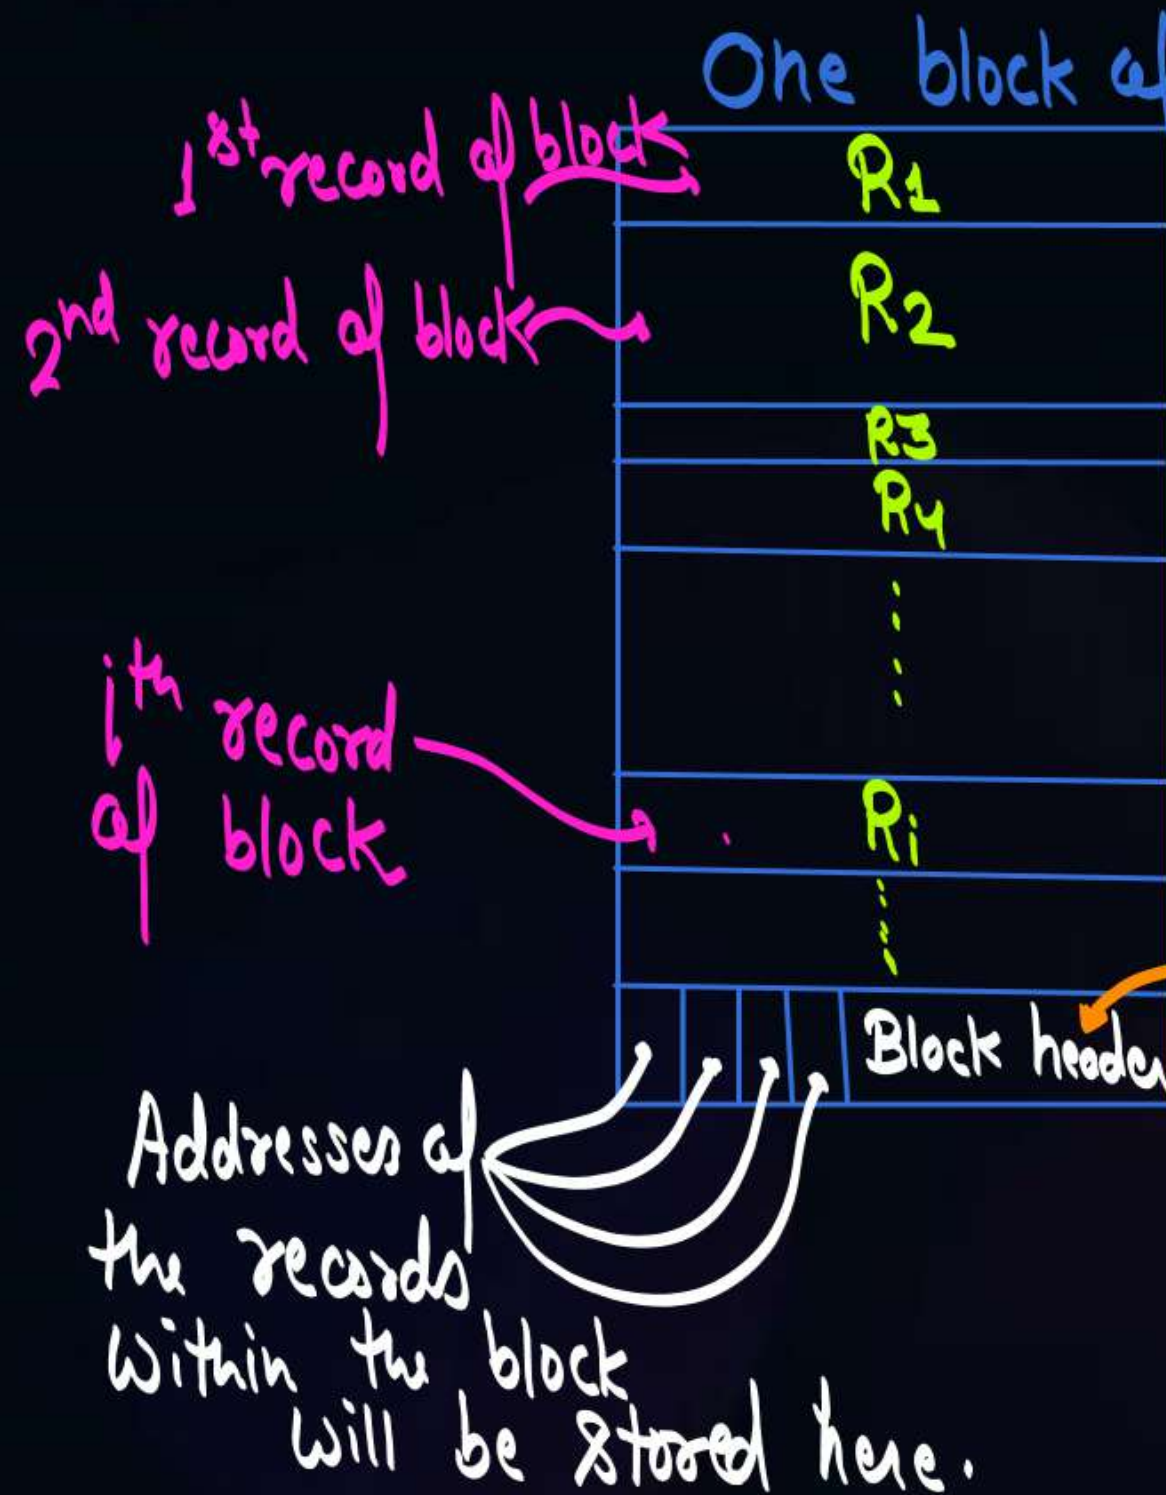 One block of
1st record of block
R1
2nd record of block
R2
R3
R4
ith record
of block
Ri
Block header
Addresses of
the records
within the block
will be stored here.